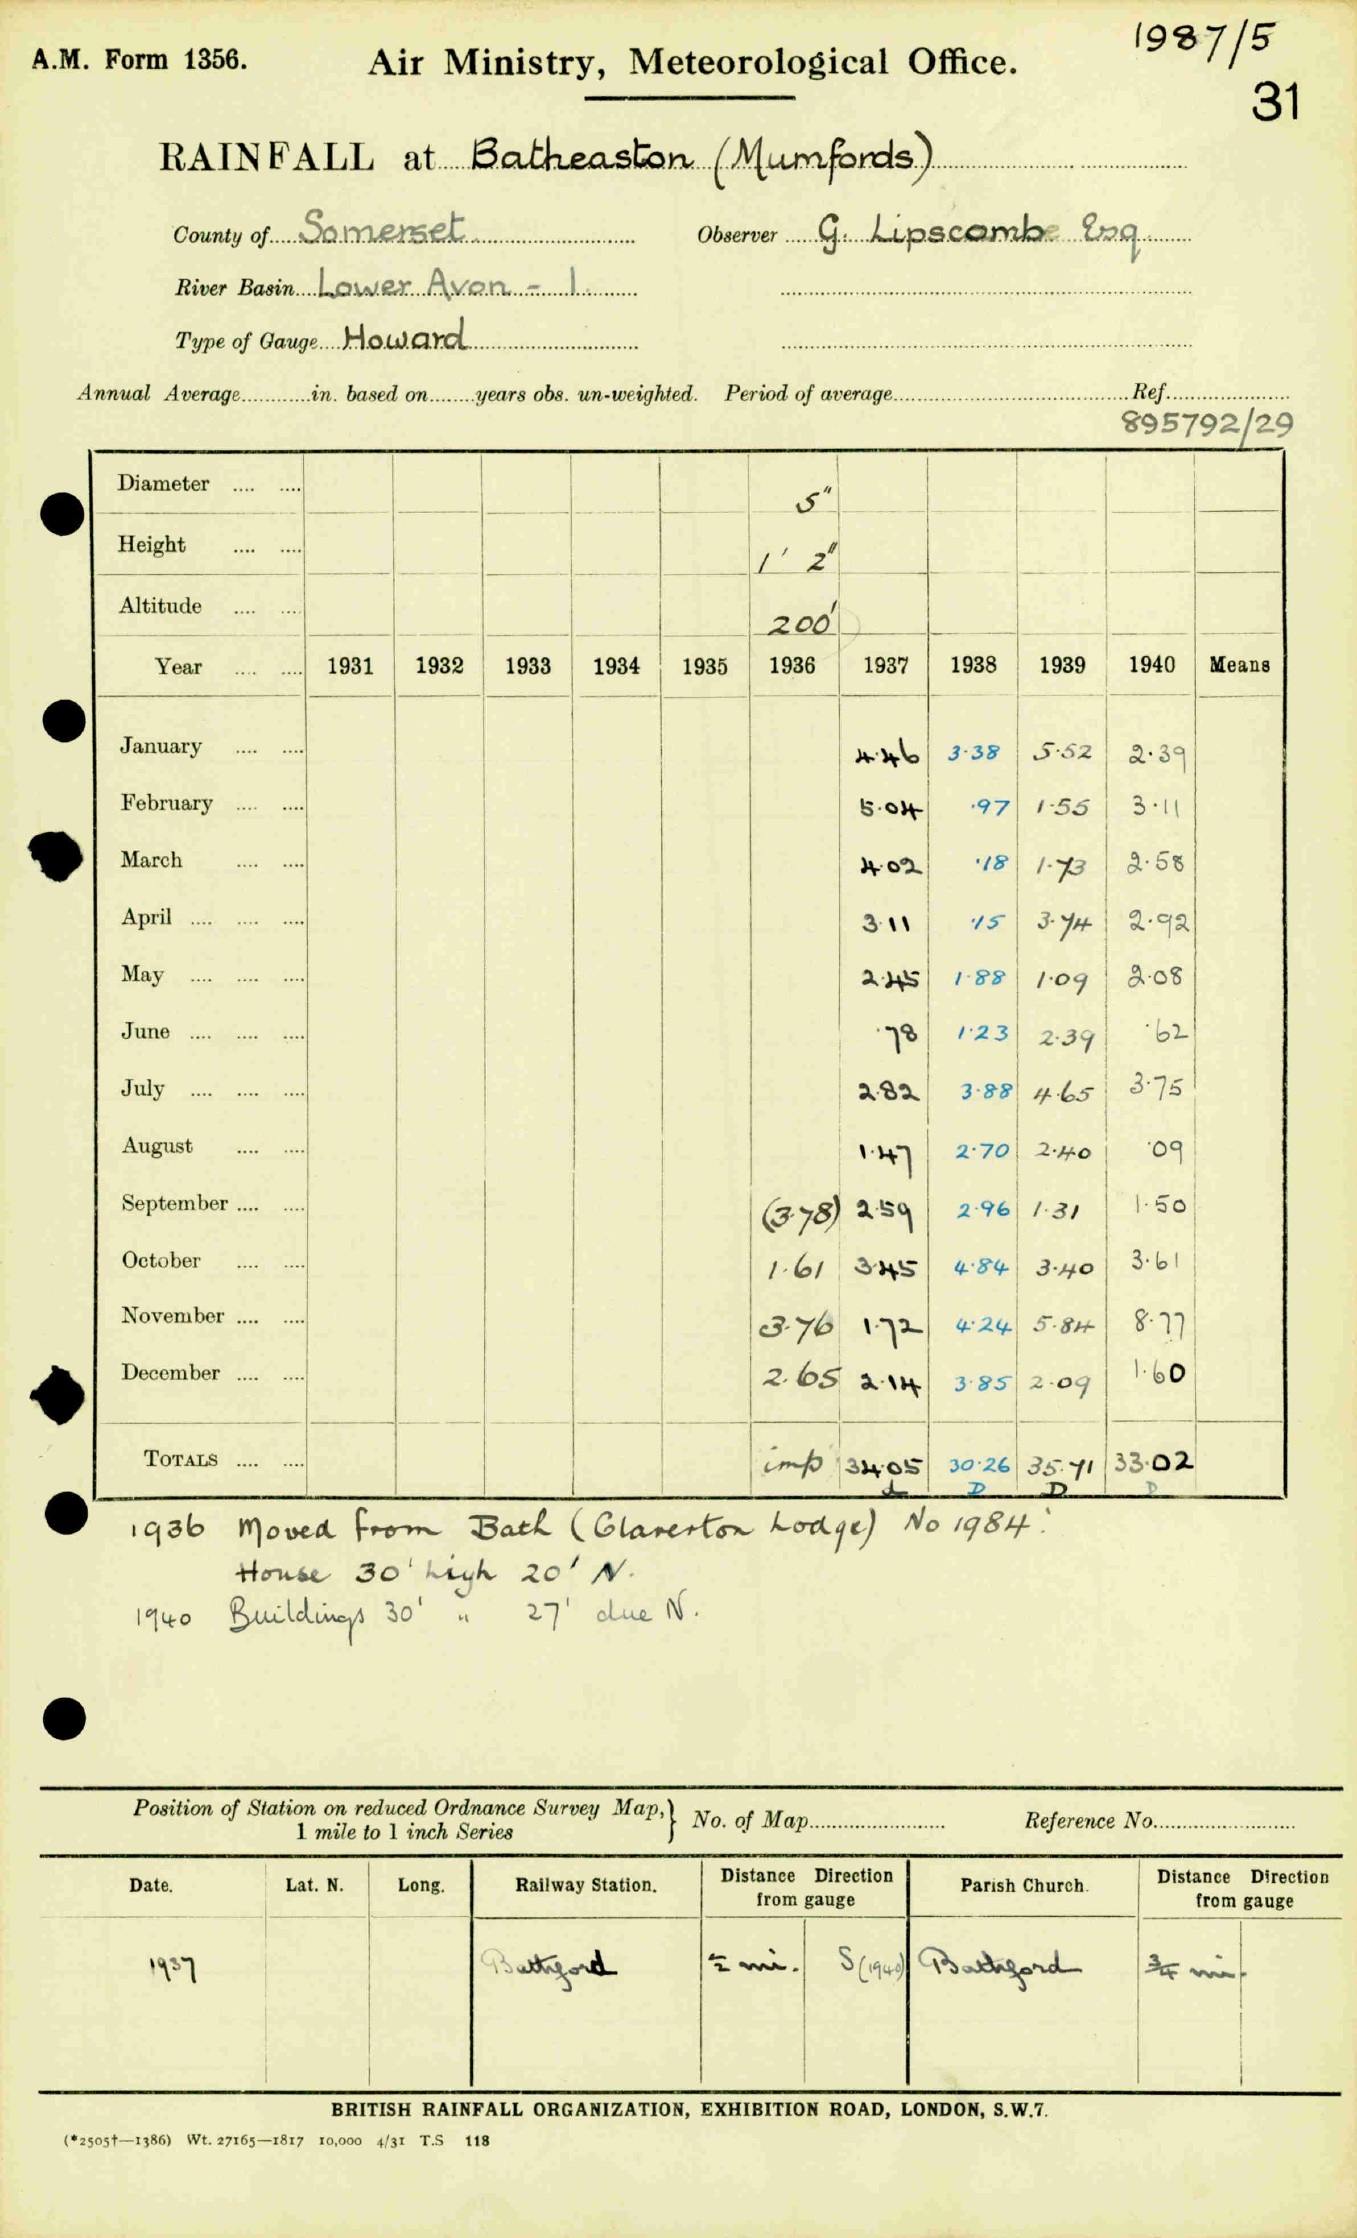 A.M. Form 1356. Air Ministry, Meteorological Office. 1987/5
31
RAINFALL at Batheaston (Mumfords)
County of Somerset Observer G. Lipscombe Esq
River Basin Lower Avon - 1
Type of Gauge Howard
Annual Average in. based on years obs. un-weighted. Period of average Ref.
895792/29
Diameter 5"
Height 1' 2"
Altitude 200'
Year 1931 1932 1933 1934 1935 1936 1937 1938 1939 1940 Means
January 4.46 3.38 5.52 2.39
February 5.04 .97 1.55 3.11
March 4.02 .18 1.73 2.58
April 3.11 .15 3.74 2.92
May 2.45 1.88 1.09 2.08
June .78 1.23 2.39 .62
July 2.82 3.88 4.65 3.75
August 1.47 2.70 2.40 .09
September (3.78) 2.59 2.96 1.31 1.50
October 1.61 3.45 4.84 3.40 3.61
November 3.76 1.72 4.24 5.84 8.77
December 2.65 2.14 3.85 2.09 1.60
TOTALS imp 34.05 30.26 35.71 33.02
D D D
1936 Moved from Bath (Claverton Lodge) No 1984.
House 30' high 20' N.
1940 Buildings 30' " 27' due N.
Position of Station on reduced Ordnance Survey Map, } No. of Map Reference No.
1 mile to 1 inch Series
Date. Lat. N. Long. Railway Station. Distance Direction from gauge Parish Church. Distance Direction from gauge
1937 Bathford ½ mi. S (1940) Bathford ¾ mi.
BRITISH RAINFALL ORGANIZATION, EXHIBITION ROAD, LONDON, S.W.7.
(*2505†—1386) Wt. 27165—1817 10,000 4/31 T.S 118